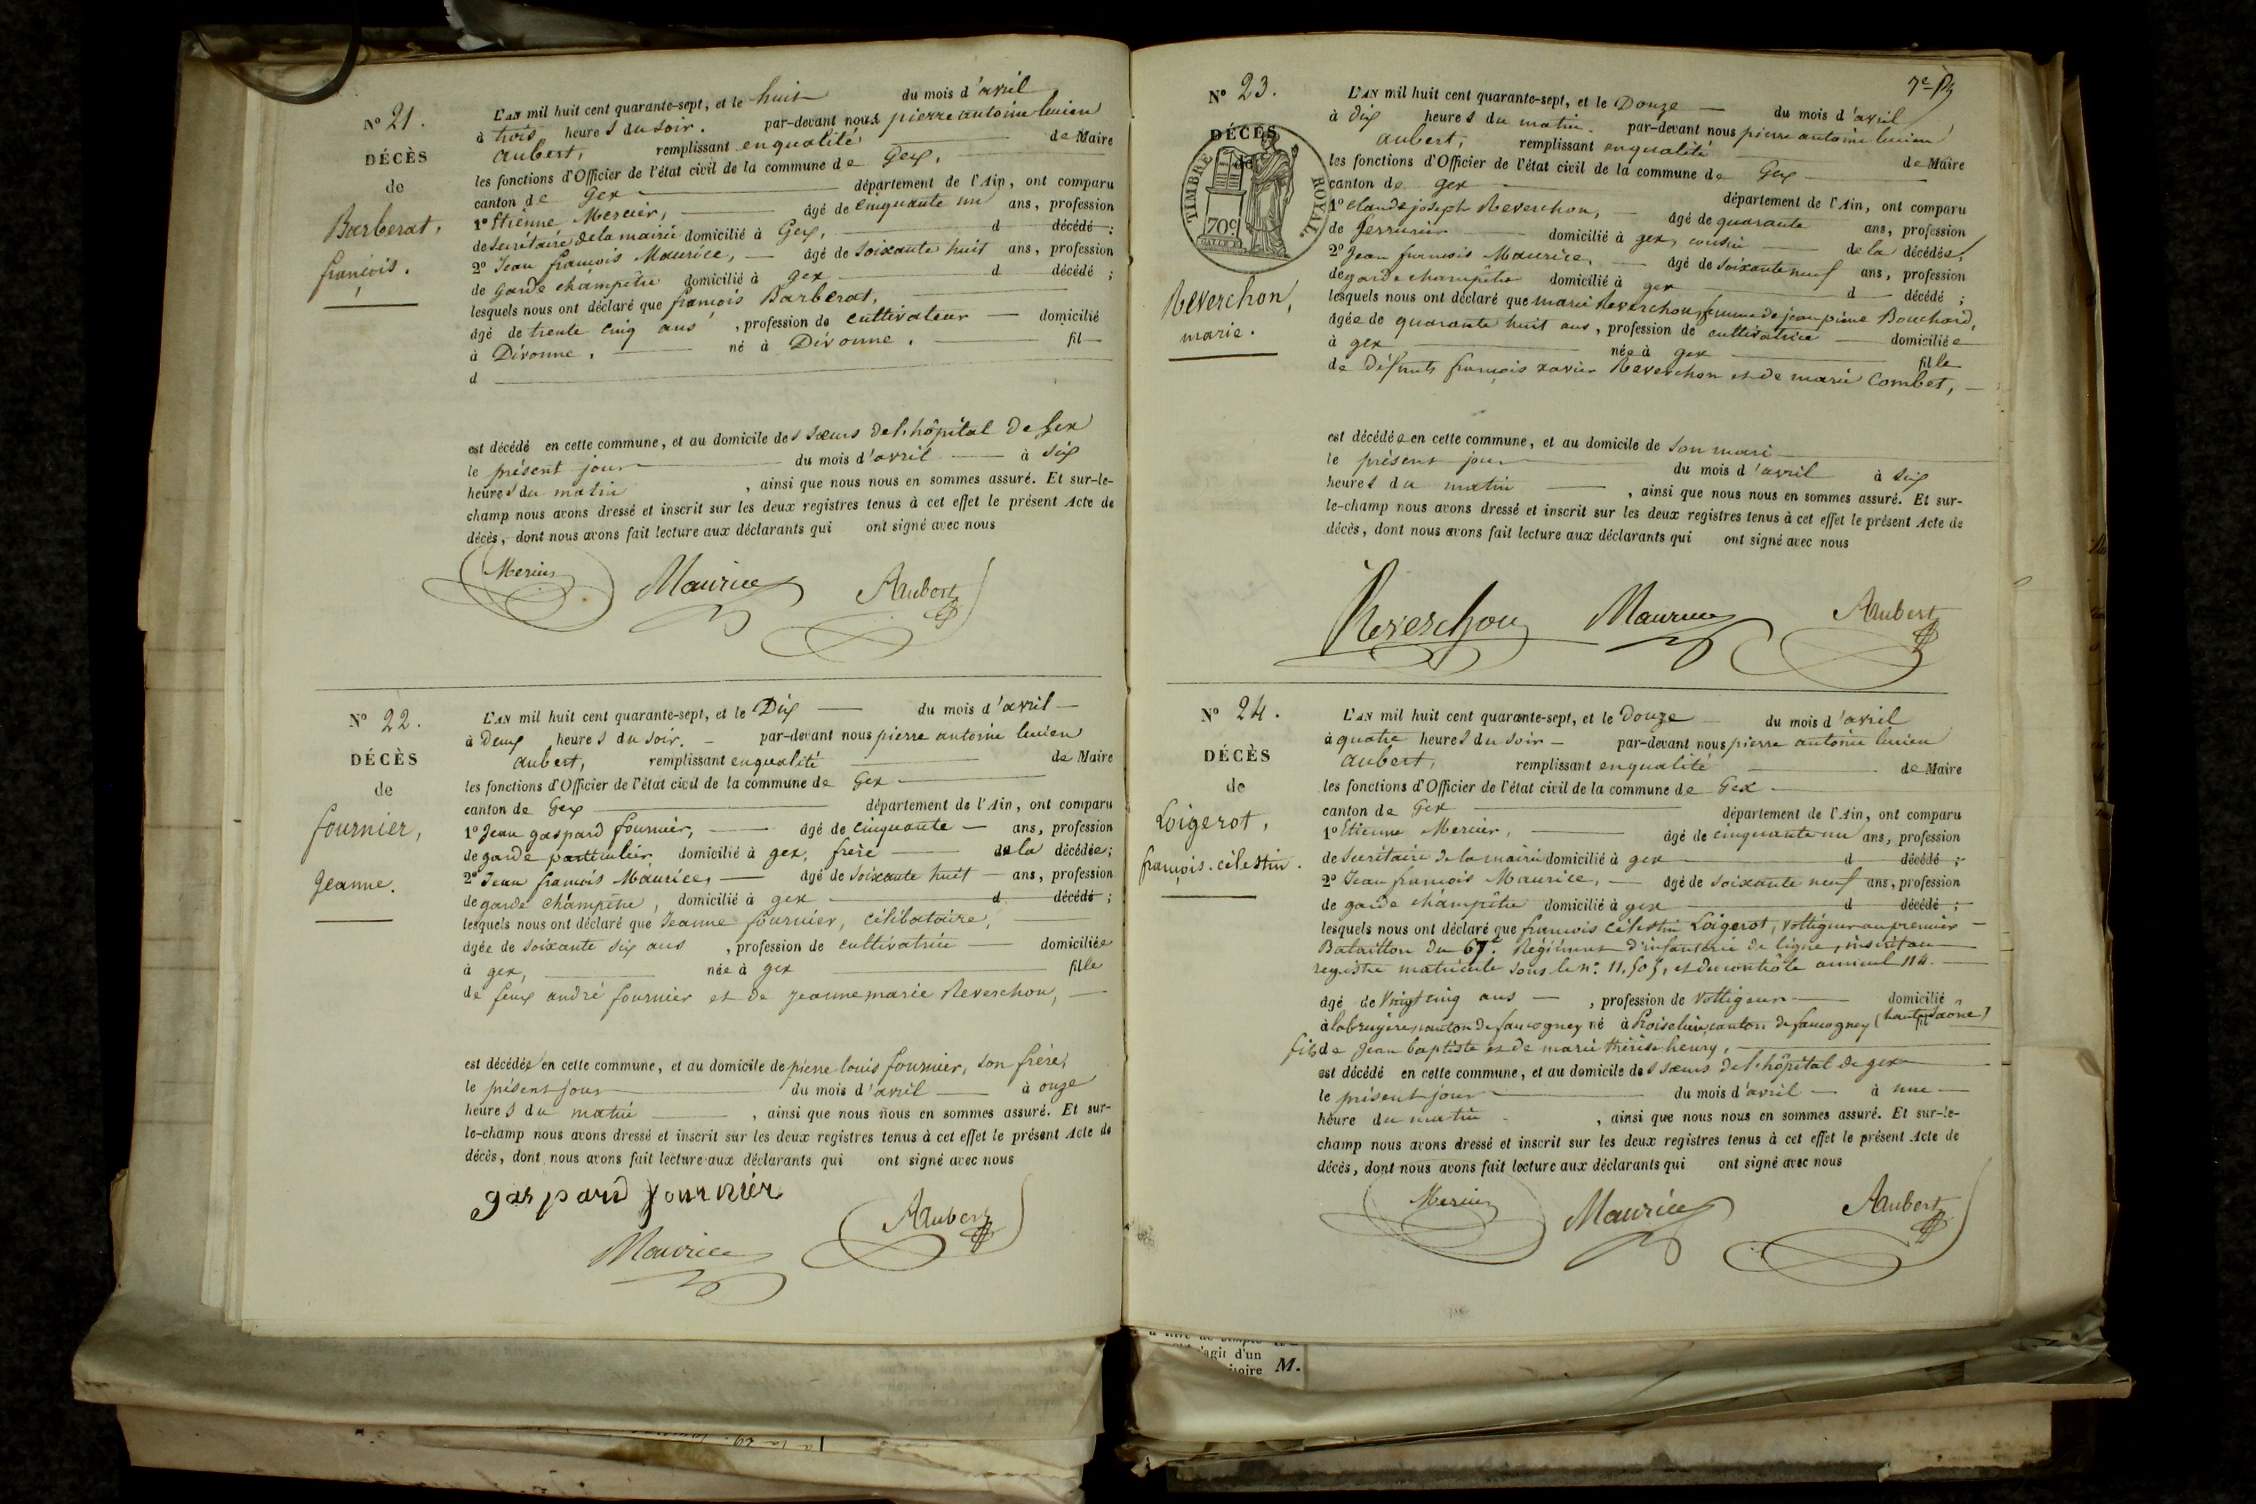 N° 21.
DÉCÈS
de
Barberat,
françois.
L'AN mil huit cent quarante-sept, et le huit du mois d'avril
à trois heures du soir. par-devant nous pierre antoine lucien
aubert, remplissant en qualité de Maire
les fonctions d'Officier de l'état civil de la commune de Gex,
canton de Gex département de l'Ain, ont comparu
1° Etienne Mercier, âgé de cinquante un ans, profession
de secrétaire de la mairie domicilié à Gex, d décédé ;
2° Jean françois Maurice, âgé de soixante huit ans, profession
de garde champêtre domicilié à gex d décédé ;
lesquels nous ont déclaré que françois Barberat,
âgé de trente cinq ans, profession de cultivateur domicilié
à Divonne, né à Divonne, fil
d
est décédé en cette commune, et au domicile des sœurs de l'hôpital de Gex
le présent jour du mois d'avril à six
heures du matin, ainsi que nous nous en sommes assuré. Et sur-le-
champ nous avons dressé et inscrit sur les deux registres tenus à cet effet le présent Acte de
décès, dont nous avons fait lecture aux déclarants qui ont signé avec nous
Mercier Maurice Aubert
N° 22.
DÉCÈS
de
fournier,
Jeanne.
L'AN mil huit cent quarante-sept, et le Dix du mois d'avril
à deux heures du soir. par-devant nous pierre antoine lucien
aubert, remplissant en qualité de Maire
les fonctions d'Officier de l'état civil de la commune de Gex
canton de Gex département de l'Ain, ont comparu
1° Jean gaspard fournier, âgé de cinquante ans, profession
de garde particulier domicilié à gex, frère de la décédée;
2° Jean françois Maurice, âgé de soixante huit ans, profession
de garde champêtre, domicilié à gex d décédé ;
lesquels nous ont déclaré que Jeanne fournier, célibataire,
âgée de soixante dix ans, profession de cultivatrice domiciliée
à gex, née à gex fille
de feux andré fournier et de jeanne marie Reverchon,
est décédée en cette commune, et au domicile de pierre louis fournier, son frère,
le présent jour du mois d'avril à onze
heures du matin, ainsi que nous nous en sommes assuré. Et sur-
le-champ nous avons dressé et inscrit sur les deux registres tenus à cet effet le présent Acte de
décès, dont nous avons fait lecture aux déclarants qui ont signé avec nous
gaspard fournier
Maurice Aubert
7e
N° 23.
DÉCÈS
de
TIMBRE ROYAL
70c
Reverchon,
marie.
L'AN mil huit cent quarante-sept, et le Douze du mois d'avril
à dix heures du matin. par-devant nous pierre antoine lucien
aubert, remplissant en qualité de Maire
les fonctions d'Officier de l'état civil de la commune de Gex
canton de gex département de l'Ain, ont comparu
1° claude joseph Reverchon, âgé de quarante ans, profession
de serrurier domicilié à gex, cousin de la décédée,
2° Jean françois Maurice, âgé de soixante neuf ans, profession
de garde champêtre domicilié à gex d décédé ;
lesquels nous ont déclaré que marie Reverchon, femme de jean pierre Bouchard,
âgée de quarante huit ans, profession de cultivatrice domiciliée
à gex née à gex fille
de défunts françois xavier Reverchon et de marie Combet,
est décédée en cette commune, et au domicile de son mari
le présent jour du mois d'avril à six
heures du matin, ainsi que nous nous en sommes assuré. Et sur-
le-champ nous avons dressé et inscrit sur les deux registres tenus à cet effet le présent Acte de
décès, dont nous avons fait lecture aux déclarants qui ont signé avec nous
Reverchon Maurice Aubert
N° 24.
DÉCÈS
de
Loigerot,
françois-célestin.
L'AN mil huit cent quarante-sept, et le douze du mois d'avril
à quatre heures du soir par-devant nous pierre antoine lucien
aubert, remplissant en qualité de Maire
les fonctions d'Officier de l'état civil de la commune de Gex
canton de Gex département de l'Ain, ont comparu
1° Etienne Mercier, âgé de cinquante un ans, profession
de secrétaire de la mairie domicilié à gex d décédé ;
2° Jean françois Maurice, âgé de soixante neuf ans, profession
de garde champêtre domicilié à gex d décédé ;
lesquels nous ont déclaré que françois célestin Loigerot, voltigeur au premier
Bataillon du 67e Régiment d'infanterie de ligne, inscrit au
registre matricule sous le n° 11,505, et du contrôle annuel 114.
âgé de vingt cinq ans, profession de voltigeur domicilié
à labruyère, canton de faucogney né à canton de faucogney (haute Saône)
fils de Jean baptiste et de marie thérèse henry,
est décédé en cette commune, et au domicile des sœurs de l'hôpital de gex
le présent jour du mois d'avril à une
heure du matin, ainsi que nous nous en sommes assuré. Et sur-le-
champ nous avons dressé et inscrit sur les deux registres tenus à cet effet le présent Acte de
décès, dont nous avons fait lecture aux déclarants qui ont signé avec nous
Mercier Maurice Aubert
s'agit d'un
M.